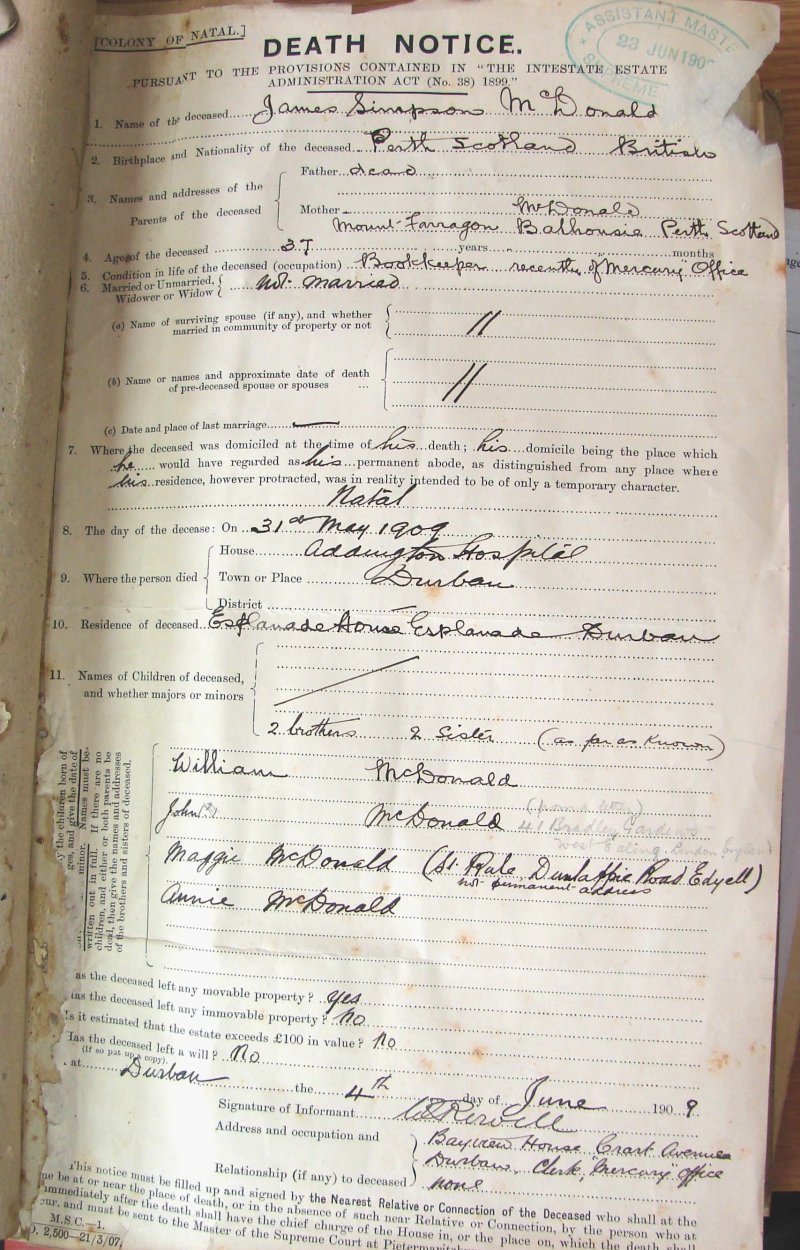 [COLONY OF NATAL.]
ASSISTANT MAST
23 JUN 190
SUPREME
DEATH NOTICE.
PURSUANT TO THE PROVISIONS CONTAINED IN "THE INTESTATE ESTATE
ADMINISTRATION ACT (No. 38) 1899."
1. Name of the deceased James Simpson McDonald
2. Birthplace and Nationality of the deceased Perth Scotland British
3. Names and addresses of the Parents of the deceased
Father dead
Mother McDonald
Mount-Farragon Balhousie Perth Scotland
4. Age of the deceased 37 years months
5. Condition in life of the deceased (occupation) Bookkeeper recently of Mercury Office
6. Married or Unmarried, Widower or Widow not married
(a) Name of surviving spouse (if any), and whether
married in community of property or not "
(b) Name or names and approximate date of death
of pre-deceased spouse or spouses ... "
(c) Date and place of last marriage —
7. Where the deceased was domiciled at the time of his death; his domicile being the place which
he would have regarded as his permanent abode, as distinguished from any place where
his residence, however protracted, was in reality intended to be of only a temporary character.
Natal
8. The day of the decease: On 31st May 1909
9. Where the person died
House Addington Hospital
Town or Place Durban
District —
10. Residence of deceased Esplanade House Esplanade Durban
11. Names of Children of deceased,
and whether majors or minors
2 brothers 2 Sister (as far as known)
y the children born of
ges, and give the date of
minor. Names must be
written out in full. If there are no
children, and either or both parents be
dead, then give the names and addresses
of the brothers and sisters of deceased.
William McDonald
John McDonald 41 Bradley Gardens
West Ealing London England
Maggie McDonald (St. Dunlappie Road Edzell)
not permanent address
Annie McDonald
as the deceased left any movable property? yes
as the deceased left any immovable property? No
s it estimated that the estate exceeds £100 in value? No
Has the deceased left a will? No
(If so put up a copy).
at Durban the 4th day of June 1909
Signature of Informant
Address and occupation and
Bayview House Grant Avenue
Durban, Clerk, "Mercury" Office
Relationship (if any) to deceased none
This notice must be filled up and signed by the Nearest Relative or Connection of the Deceased who shall at the
me be at or near the place of death, or in the absence of such near Relative or Connection, by the person who at
immediately after the death shall have the chief charge of the House in, or the place on, which the death shall
ur, and must be sent to the Master of the Supreme Court at Pietermaritz
M.S.C.—1.
D. 2,500—21/3/07